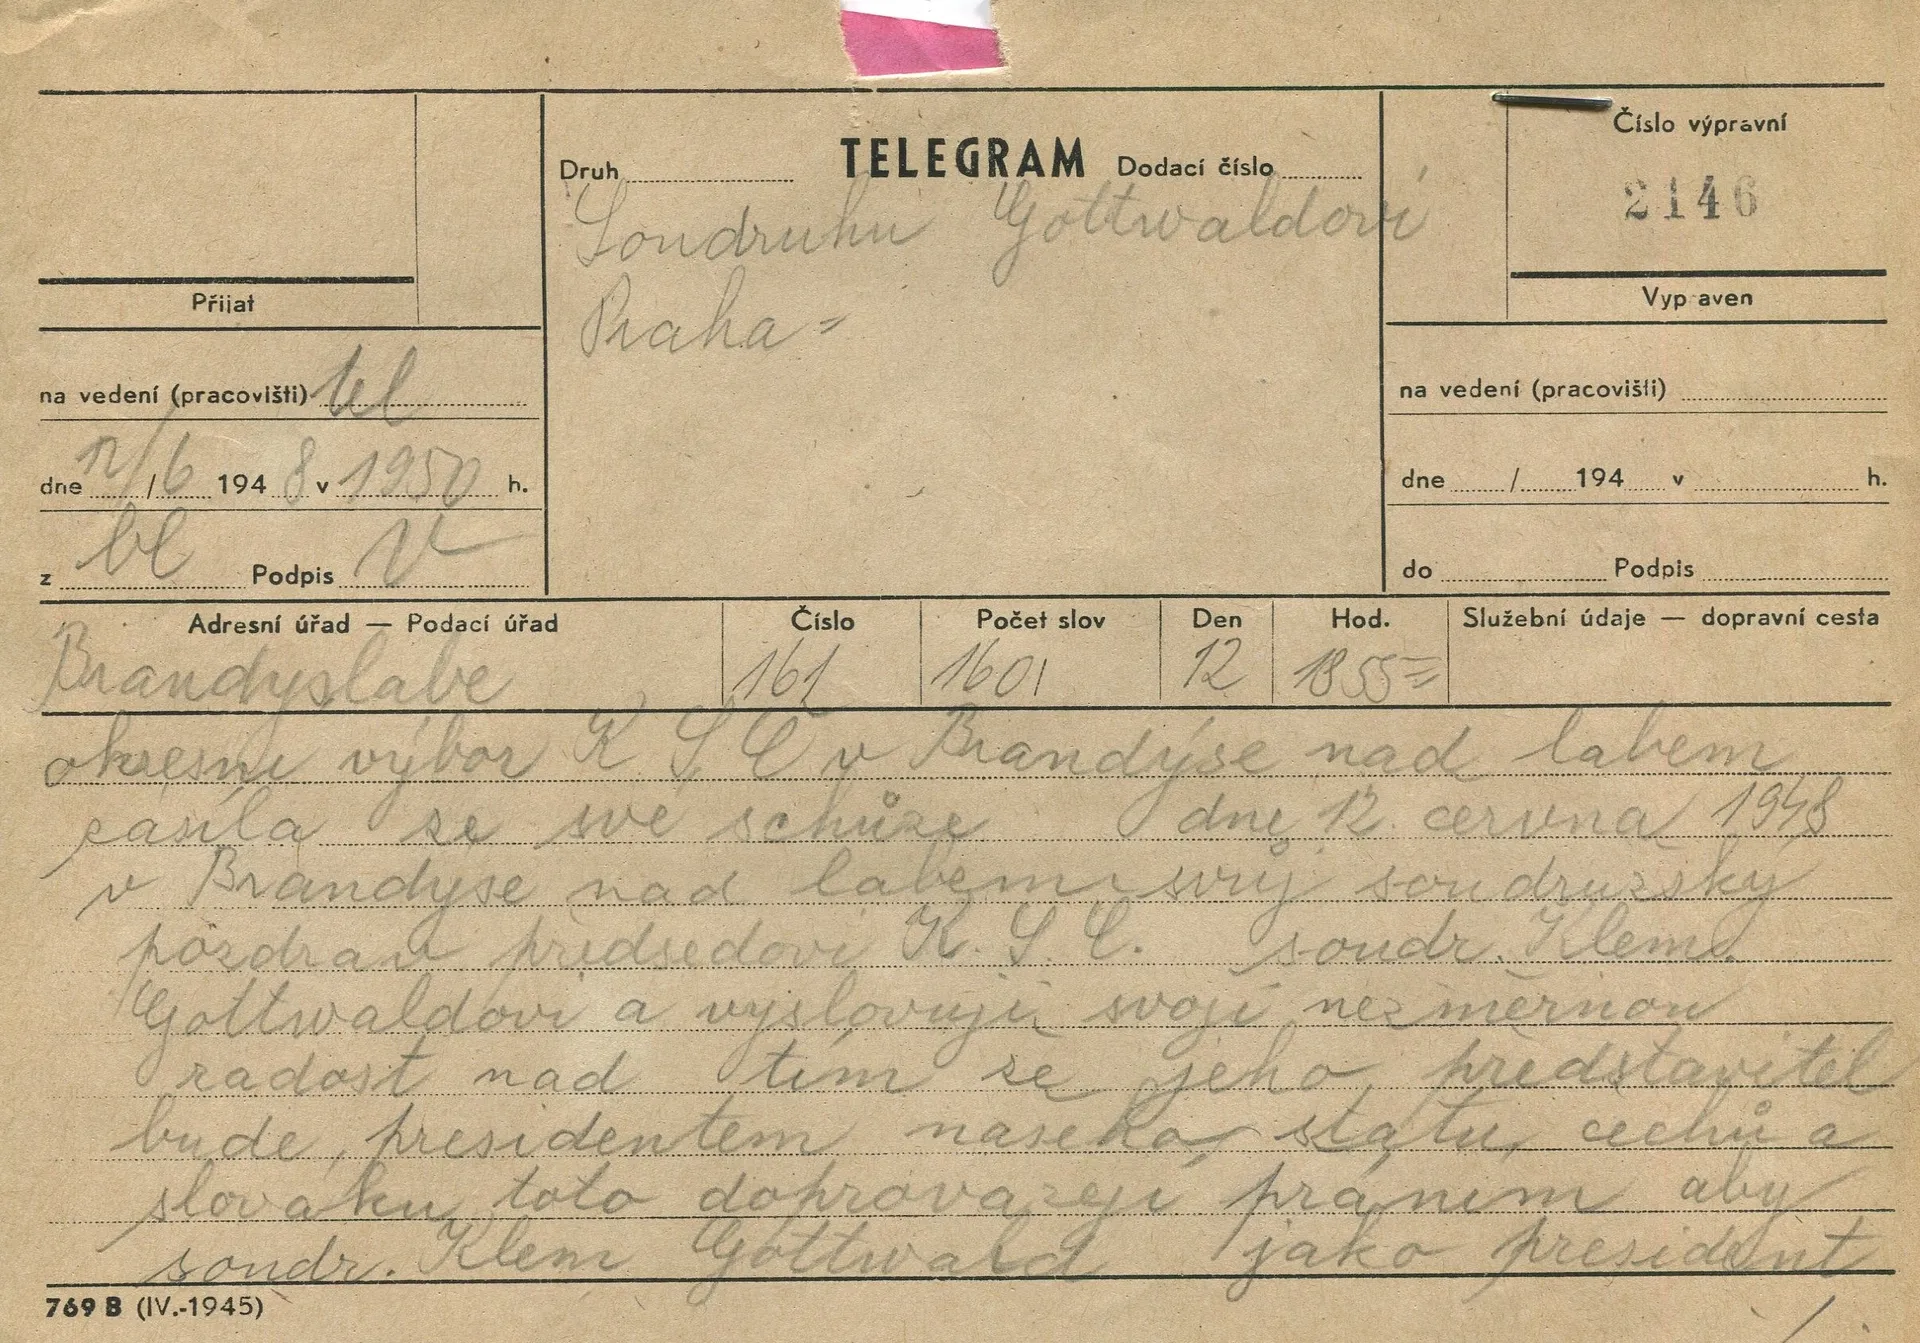 TELEGRAM
Druh
Dodací číslo
Číslo výpravní
2146
Soudruhu Gottwaldovi
Praha =
Přijat
Vypraven
na vedení (pracovišti) tel
dne 12/6 1948 v 1950 h.
z bl Podpis V
na vedení (pracovišti)
dne / 194 v h.
do Podpis
Adresní úřad — Podací úřad Číslo Počet slov Den Hod. Služební údaje — dopravní cesta
Brandyslabe 161 1601 12 1855=
okresni výbor K S C v Brandýse nad labem
zasila ze své schůze dne 12. cervna 1948
v Brandyse nad labem svůj soudruzsky
pozdrav předsedovi K. S. C. soudr. Klem.
Gottwaldovi a vyslovuji svoji nezměrnou
radost nad tim ze jeho představitel
bude presidentem naseho státu cechů a
slováku toto doprovazeji práním aby
soudr. Klem Gottwald jako president
769 B (IV.-1945)